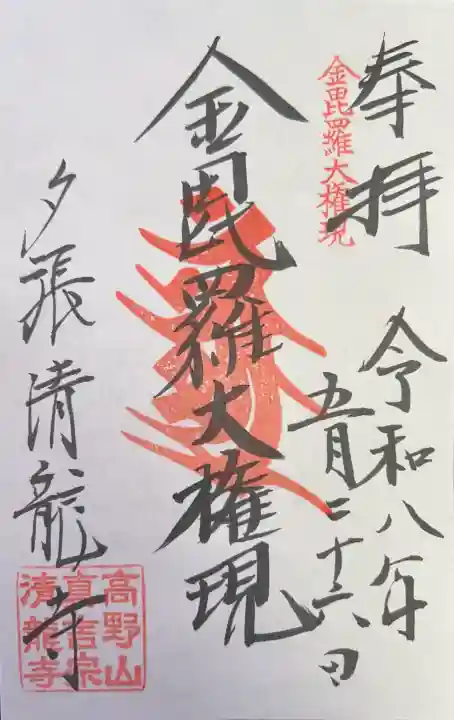 奉拝
金毘羅大権現
令和八年
五月二十六日
金毘羅大権現
夕張清龍寺
高野山
真言宗
清龍寺